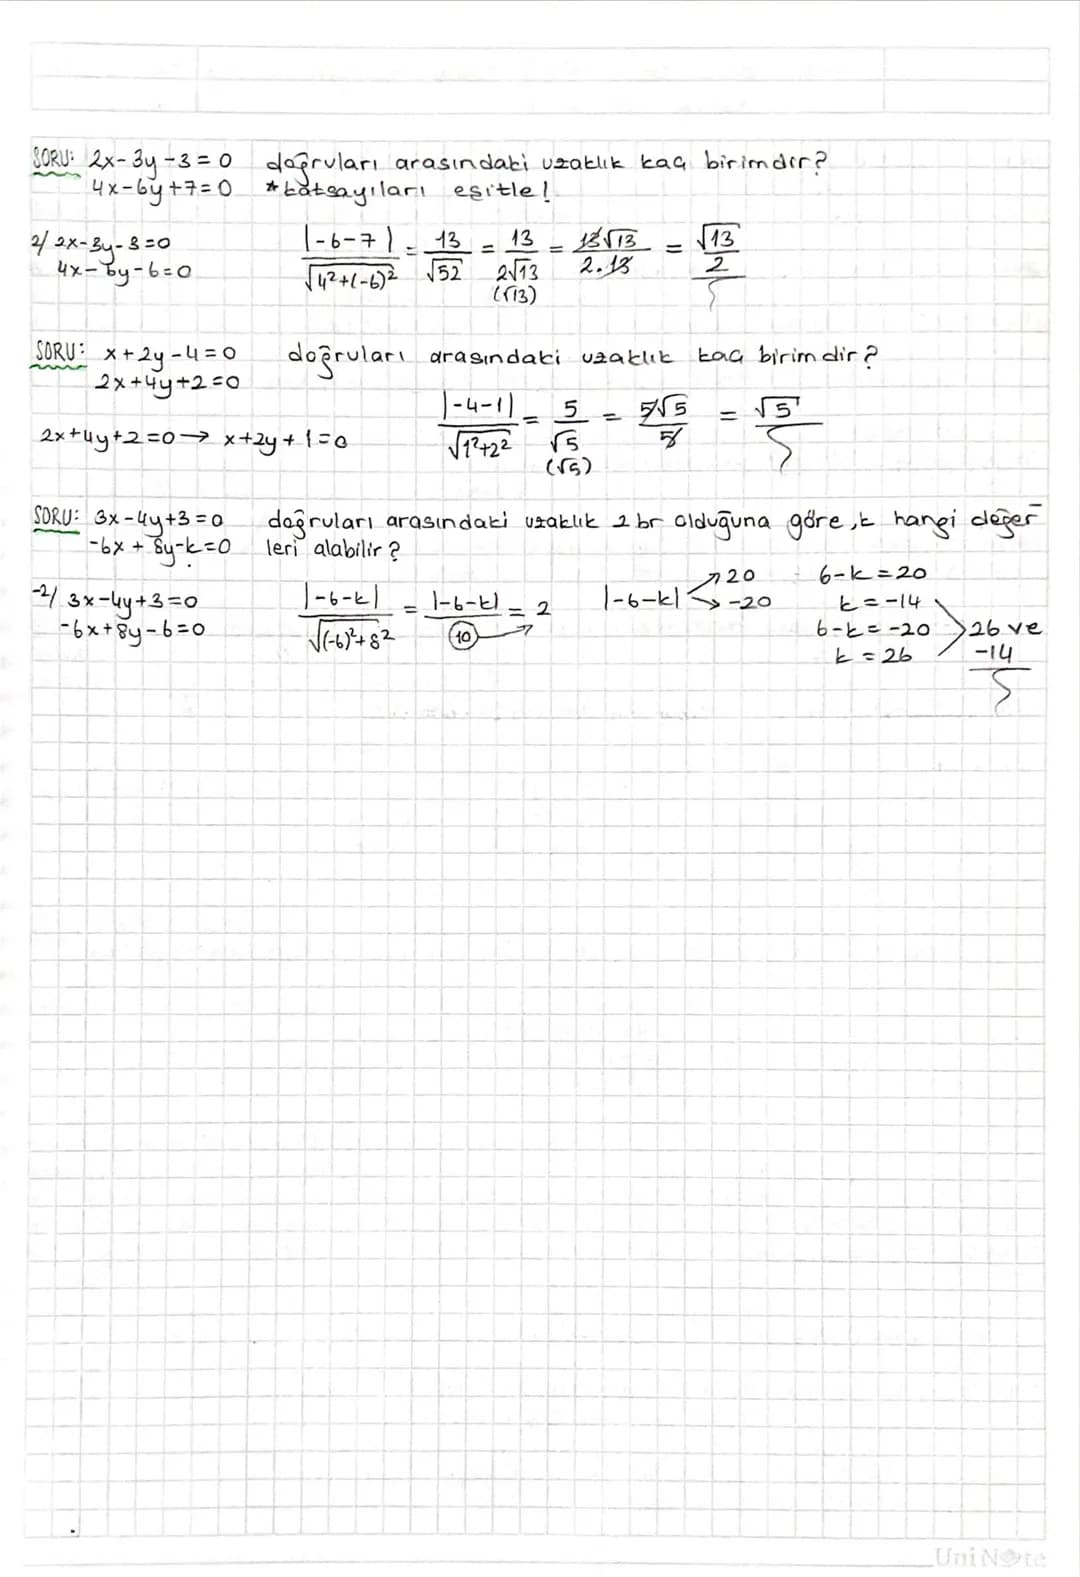 SORU: 2x-3y-3=0 doğruları arasındaki uzaklık kaç birimdir?
4x-6y+7=0 *katsayıları eşitle!
2/ 2x-3y-3=0 |-6-7| / √4²+(-6)² = 13/√52 = 13/2√13 (√13) = 13√13/2.13 = √13/2
4x-6y-6=0
SORU: x+2y-4=0 doğruları arasındaki uzaklık kaç birimdir?
2x+4y+2=0
2x+4y+2=0→ x+2y+1=0 |-4-1| / √1²+2² = 5/√5 (√5) = 5√5/5 = √5
SORU: 3x-4y+3=0 doğruları arasındaki uzaklık 2 br olduğuna göre, k hangi değer
-6x+8y-k=0 leri alabilir?
-2/ 3x-4y+3=0 |-6-k| / √(-6)²+8² = |-6-k| / 10 = 2 |-6-k| 20 6-k=20
-6x+8y-6=0 -20 k=-14
6-k=-20 26 ve
k=26 -14
UniNote